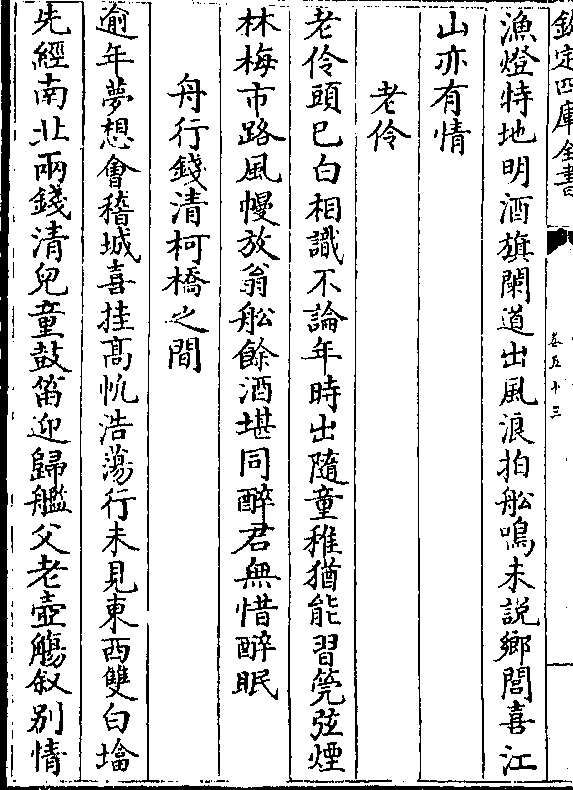 欽定四庫全書
卷五十三
漁燈特地明酒旗闌道出風浪拍船鳴未說鄉閭喜江
山亦有情
老伶
老伶頭已白相識不論年時出隨童稚猶能習筦弦煙
林梅市路風幔放翁船餘酒堪同醉君無惜醉眠
舟行錢清柯橋之間
逾年夢想會稽城喜挂高帆浩蕩行未見東西雙白墖
先經南北兩錢清兒童鼓笛迎歸艦父老壺觴叙别情